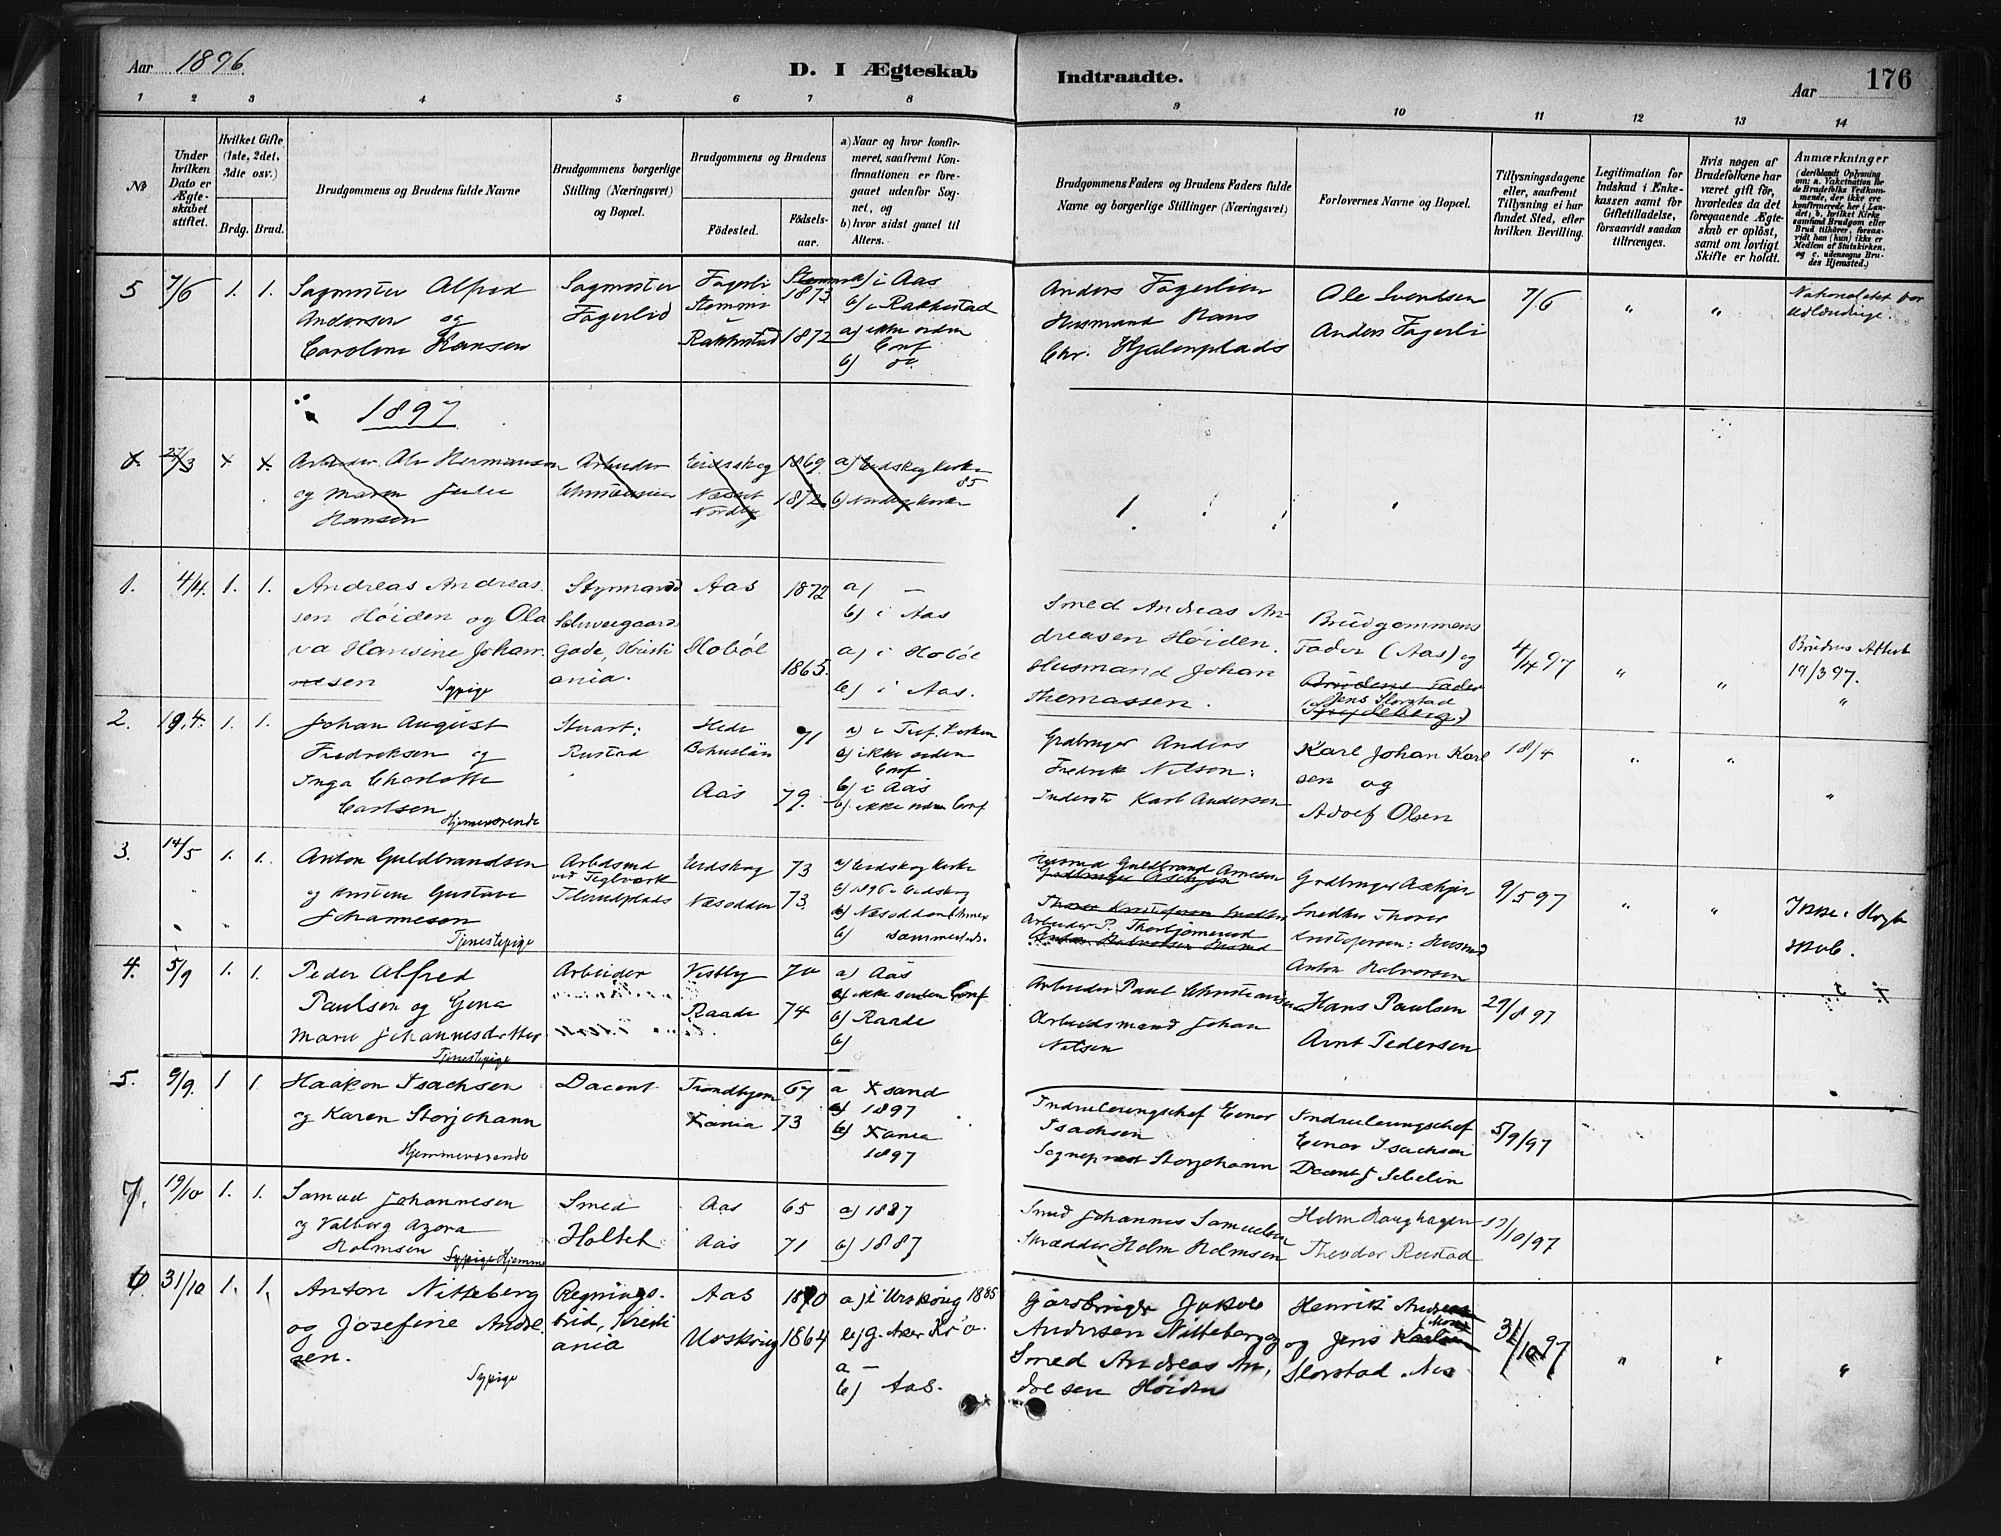 Aar 1896
D. I Ægteskab Indtraadte.
Aar 176
1 2 3 4 5 6 7 8 9 10 11 12 13 14
No
Under hvilken Dato er Ægteskabet stiftet.
Hvilket Gifte (1ste, 2det, 3die osv.)
Brdg. Brud.
Brudgommens og Brudens fulde Navne
Brudgommens borgerlige Stilling (Næringsvei) og Bopæl.
Brudgommens og Brudens
Födested. Födsels-aar.
a) Naar og hvor konfirmeret, saafremt Konfirmationen er foregaaet udenfor Sognet, og
b) hvor sidst gaaet til Alters.
Brudgommens Faders og Brudens Faders fulde Navne og borgerlige Stillinger (Næringsvei)
Forlovernes Navne og Bopæl.
Tillysningsdagene eller, saafremt Tillysning ei har fundet Sted, efter hvilken Bevilling.
Legitimation for Indskud i Enkekassen samt for Giftetilladelse, forsaavidt saadan tiltrænges.
Hvis nogen af Brudefolkene har været gift för, hvorledes da det foregaaende Ægteskab er oplöst, samt om lovligt Skifte er holdt.
Anmærkninger
(deriblandt Oplysning om: a. Vakcination for de Brudefolks Vedkommende, der ikke ere konfirmerede her i Landet; b. hvilket Kirkesamfund Brudgom eller Brud tilhører, forsaavidt han (hun) ikke er Medlem af Statskirken, og c. udensogns Brudes Hjemsted.)
5 7/6 1. 1. Sagmester Alfred
Andersen og
Caroline Hansen
Sagmester
Fagerlid
Fagerli
Stemmi
Rakkestad
1873
1872
a) i Aas
b) i Rakkestad
a) ikke siden Conf
b) do.
Anders Fagerlien
Husmand Hans
Chr. Hjelmplads
Ole Svendsen
Anders Fagerli
7/6 " "
1897
27/3 x x. Arbeider Ole Hermansen
og Maren Julie
Hansen
Arbeider
Christiania
Eidskog
Næsset
Nordby
1869.
1872
a) Eidskog Kirke 85
b) Nordby Kirke
1. 4/4. 1. 1. Andreas Andreas
sen Höiden og Ola
va Hansine Johan
nesen Sypige
Styrmand
Schweigaards
gade, Kristi
ania.
Aas
Hobøl
1872
1865.
a) —
b) i Aas
a) i Hobøl
b) i Aas.
Smed Andreas An
dreasen Höiden.
Husmand Johan
Thomassen.
Brudgommens
Fader (Aas) og
Brudens Fader
Jens Storstad
(Spydeberg.)
4/4 97 " "
Brudens Attest
19/3 97.
"
2. 19.4. 1. 1. Johan August
Fredriksen og
Inga Charlotte
Carlsen Hjemmeværende
Rustad
Hede
Bohuslän
Aas
71
79.
a) ikke siden Conf
b) i Aas
b) ikke siden Conf
Grdbruger Anders
Fredrik Nilsen:
Inderste Karl Andersen
Karl Johan Karl
sen og
Adolf Olsen
18/4 " " "
3. 14/5 1. 1. Anton Guldbrandsen
og Kristine Gustava
Johannesen
Tjenestepige
Arbeidsmd
ved Teglværk
Eidskog
Næsodden
73
73.
a) Eidskog Kirke
b) 1896 i Eidskog
a) Næsodden
b) sammesteds.
Husmd Guldbrand Arnesen
Arbeider P. Thorbjørnsrud
Snedker Thorer
Kristofersen: Husmd
Anton Halvorsen
9/5 97 " "
4. 5/9 1. 1. Peder Alfred
Paulsen og Gina
Marie Johannesdatter
Tjenestepige
Arbeider
Vestby
Raade
70
74
a) Aas
a) ikke siden Conf
b) Raade
b)
Arbeider Paul Christiansen
Arbeidsmand Johan
Nilsen
Hans Paulsen
Arnt Pedersen
29/8 97
5. 9/9. 1 1. Haakon Isachsen
og Karen Storjohann
Hjemmeværende
Docent
Trondhjem
Xania
67
73
a Xsand
1897
b) Xania
1897
Indrulleringschef Einar
Isachsen
Sogneprest Storjohann
Indrulleringschef
Einar Isachsen
Docent J Sebelin
5/9/97
7. 19/10 1. 1. Samuel Johannesen
og Valborg Azora
Holmsen Sypige Hjemme
Smed
Holtet
Aas
Aas
65
71
a) 1887
b) 1887
Smed Johannes Samuelsen
Skrædder Holm Holmsen
Holm Haughagen
Theodor Rustad
17/10/97
6. 31/10 1. 1. Anton Nitteberg
og Josefine Andre
sen.
Sypige
Regnings-
bud, Kristi
ania
Aas
Urskoug
1870
1864
a) i Urskoug 1885
b) g. Aker Kr.a.
a —
b) Aas.
Gårdbruger Jakob
Andersen Nitteberg og
Smed Andreas An
dresen Höiden
Henrik Andresen
og Jens
Storstad. Aas
31/10 97 " " "